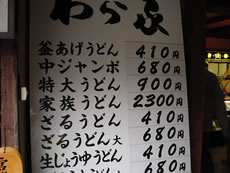 わら家
釜あげうどん 410円
中ジャンボ 680円
特大うどん 900円
家族うどん 2300円
ざるうどん 410円
ざるうどん大 680円
生じょうゆうどん 410円
680円